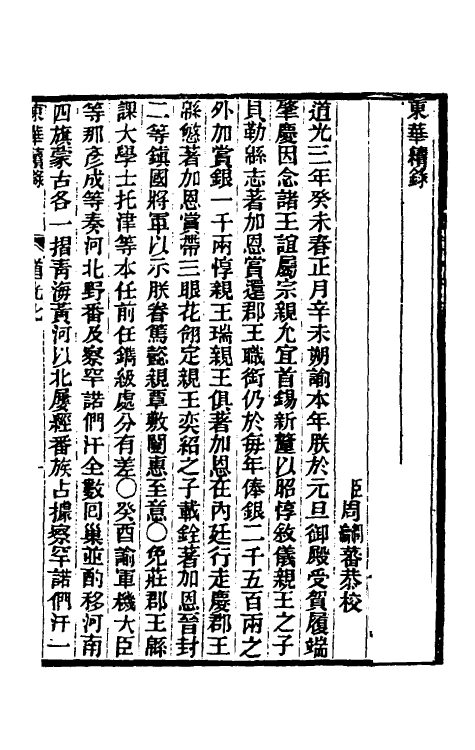 東華續錄
臣周潤蕃恭校
道光三年癸未春正月辛未朔諭本年朕於元旦御殿受賀履端
肇慶因念諸王誼屬宗親允宜首錫新釐以昭惇敘儀親王之子
貝勒緜志著加恩賞還郡王職銜仍於每年俸銀二千五百兩之
外加賞銀一千兩惇親王瑞親王俱著加恩在內廷行走慶郡王
緜慜著加恩賞帶三眼花翎定親王奕紹之子載銓著加恩晉封
二等鎮國將軍以示朕眷篤懿親覃敷闓惠至意〇免莊郡王緜
課大學士托津等本任前任鐫級處分有差〇癸酉諭軍機大臣
等那彥成等奏河北野番及察罕諾們汗全數囘巢並酌移河南
四旗蒙古各一摺靑海黃河以北屢經番族占據察罕諾們汗一
東華續錄
道光七